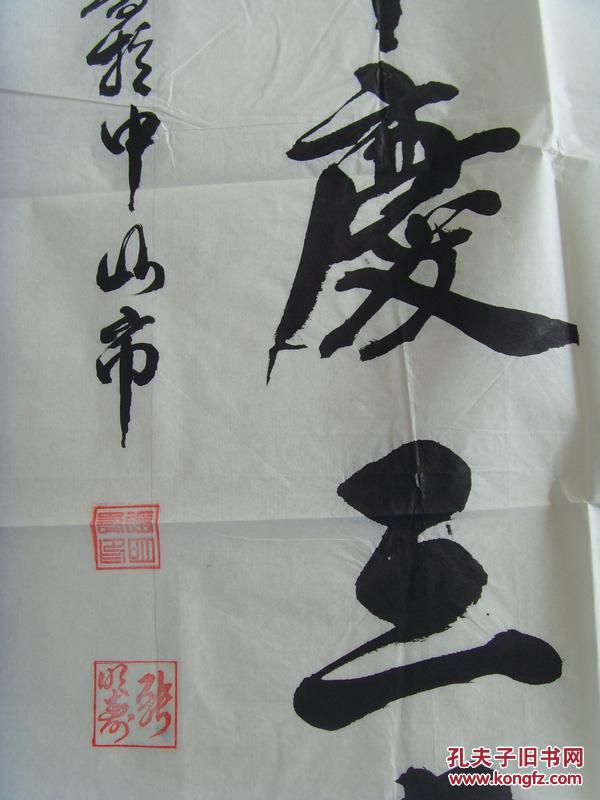 慶三
於中山市
張明壽
孔夫子旧书网
www.kongfz.com